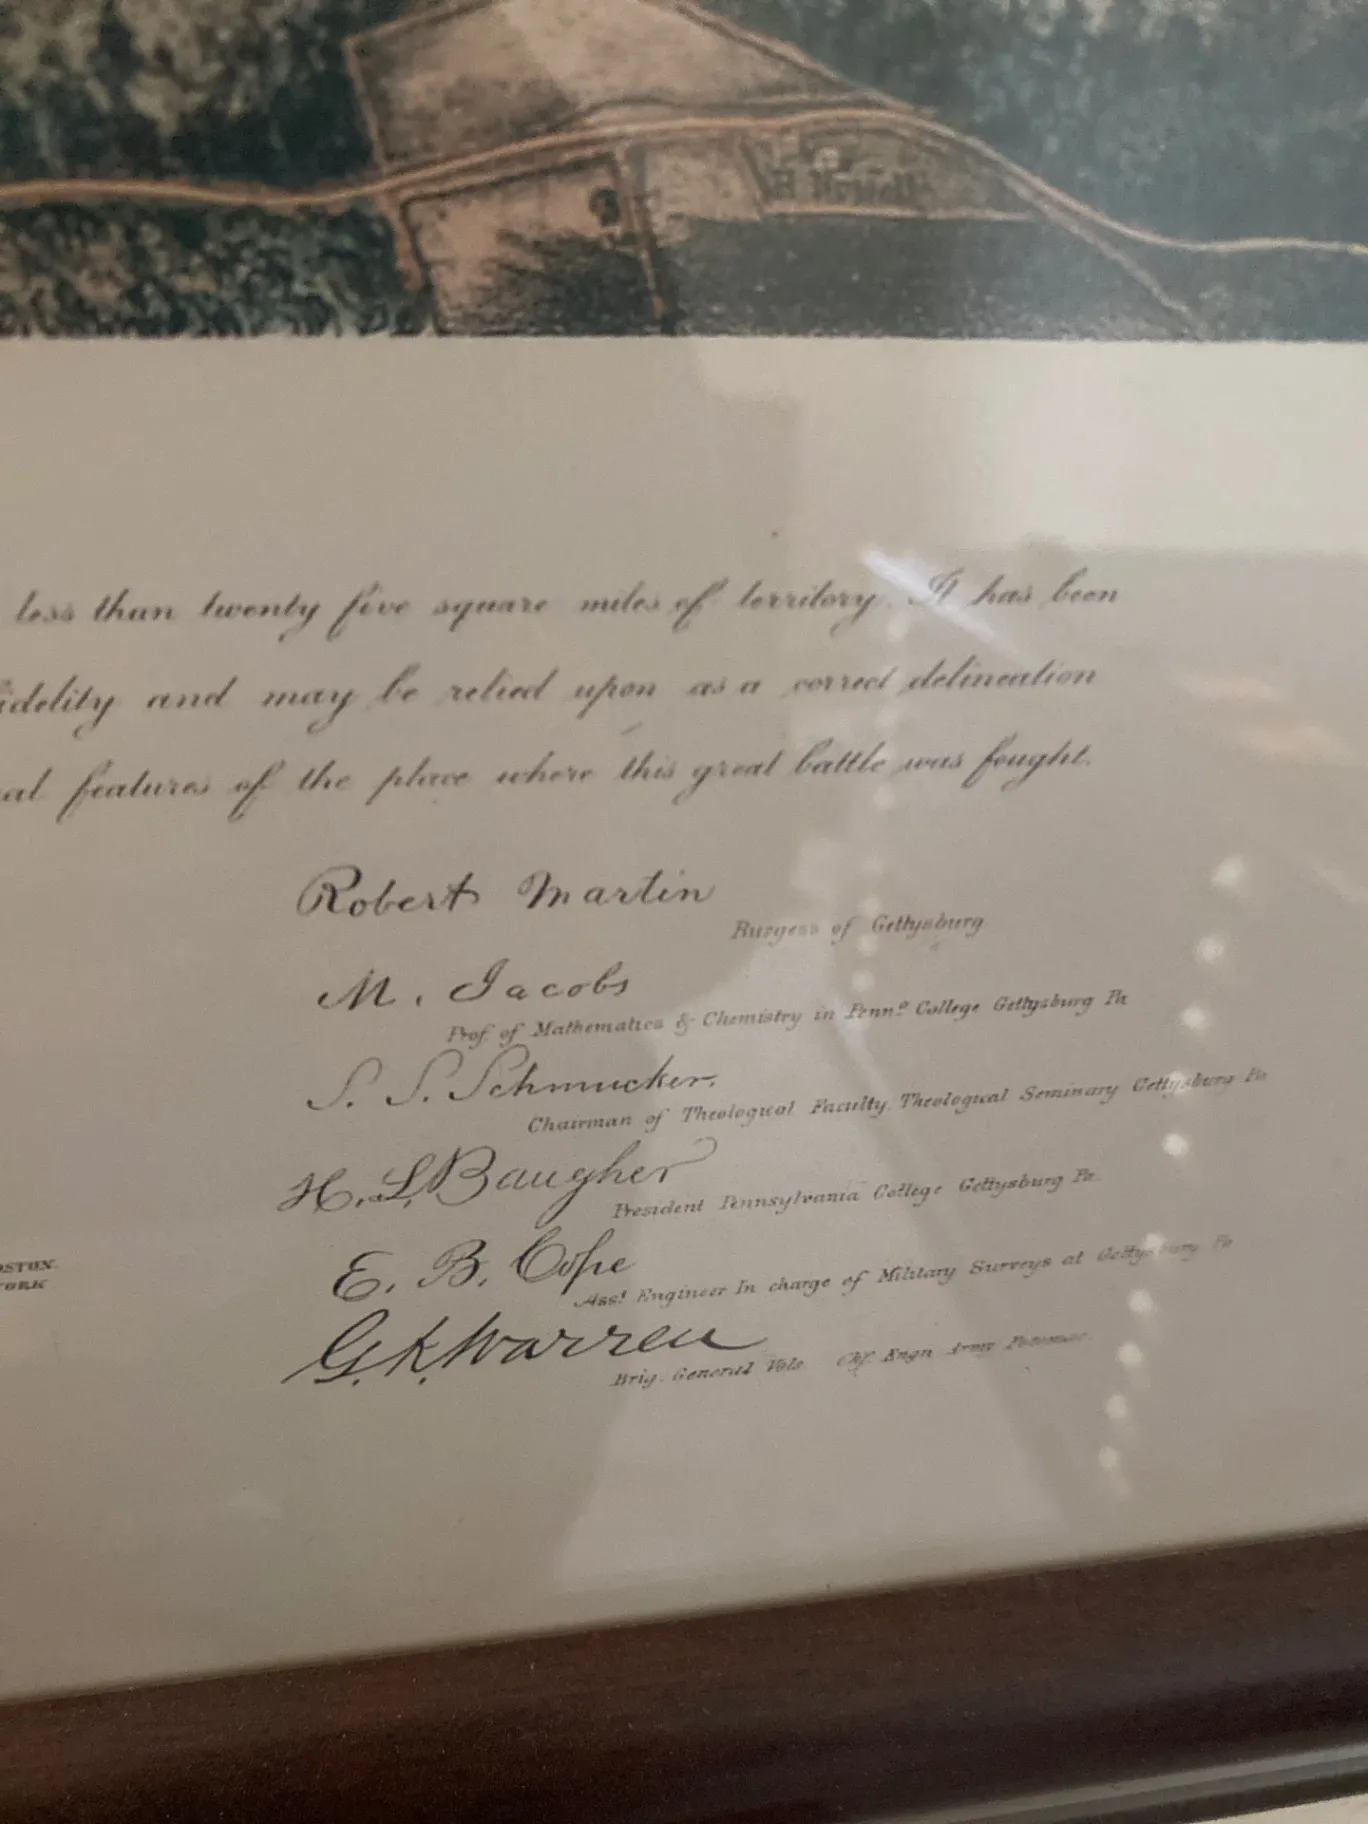 less than twenty five square miles of territory. It has been
idelity and may be relied upon as a correct delineation
al features of the place where this great battle was fought.
Robert Martin
Burgess of Gettysburg
M. Jacobs
Prof. of Mathematics & Chemistry in Penna College Gettysburg Pa
S. S. Schmucker.
Chairman of Theological Faculty, Theological Seminary Gettysburg Pa
H. L. Baugher
President Pennsylvania College Gettysburg Pa.
OSTON.
E. B. Cope
YORK
Asst Engineer In charge of Military Surveys at Gettysburg Pa
G. K. Warren
Brig. General Vols. Chf. Engn Army Potomac